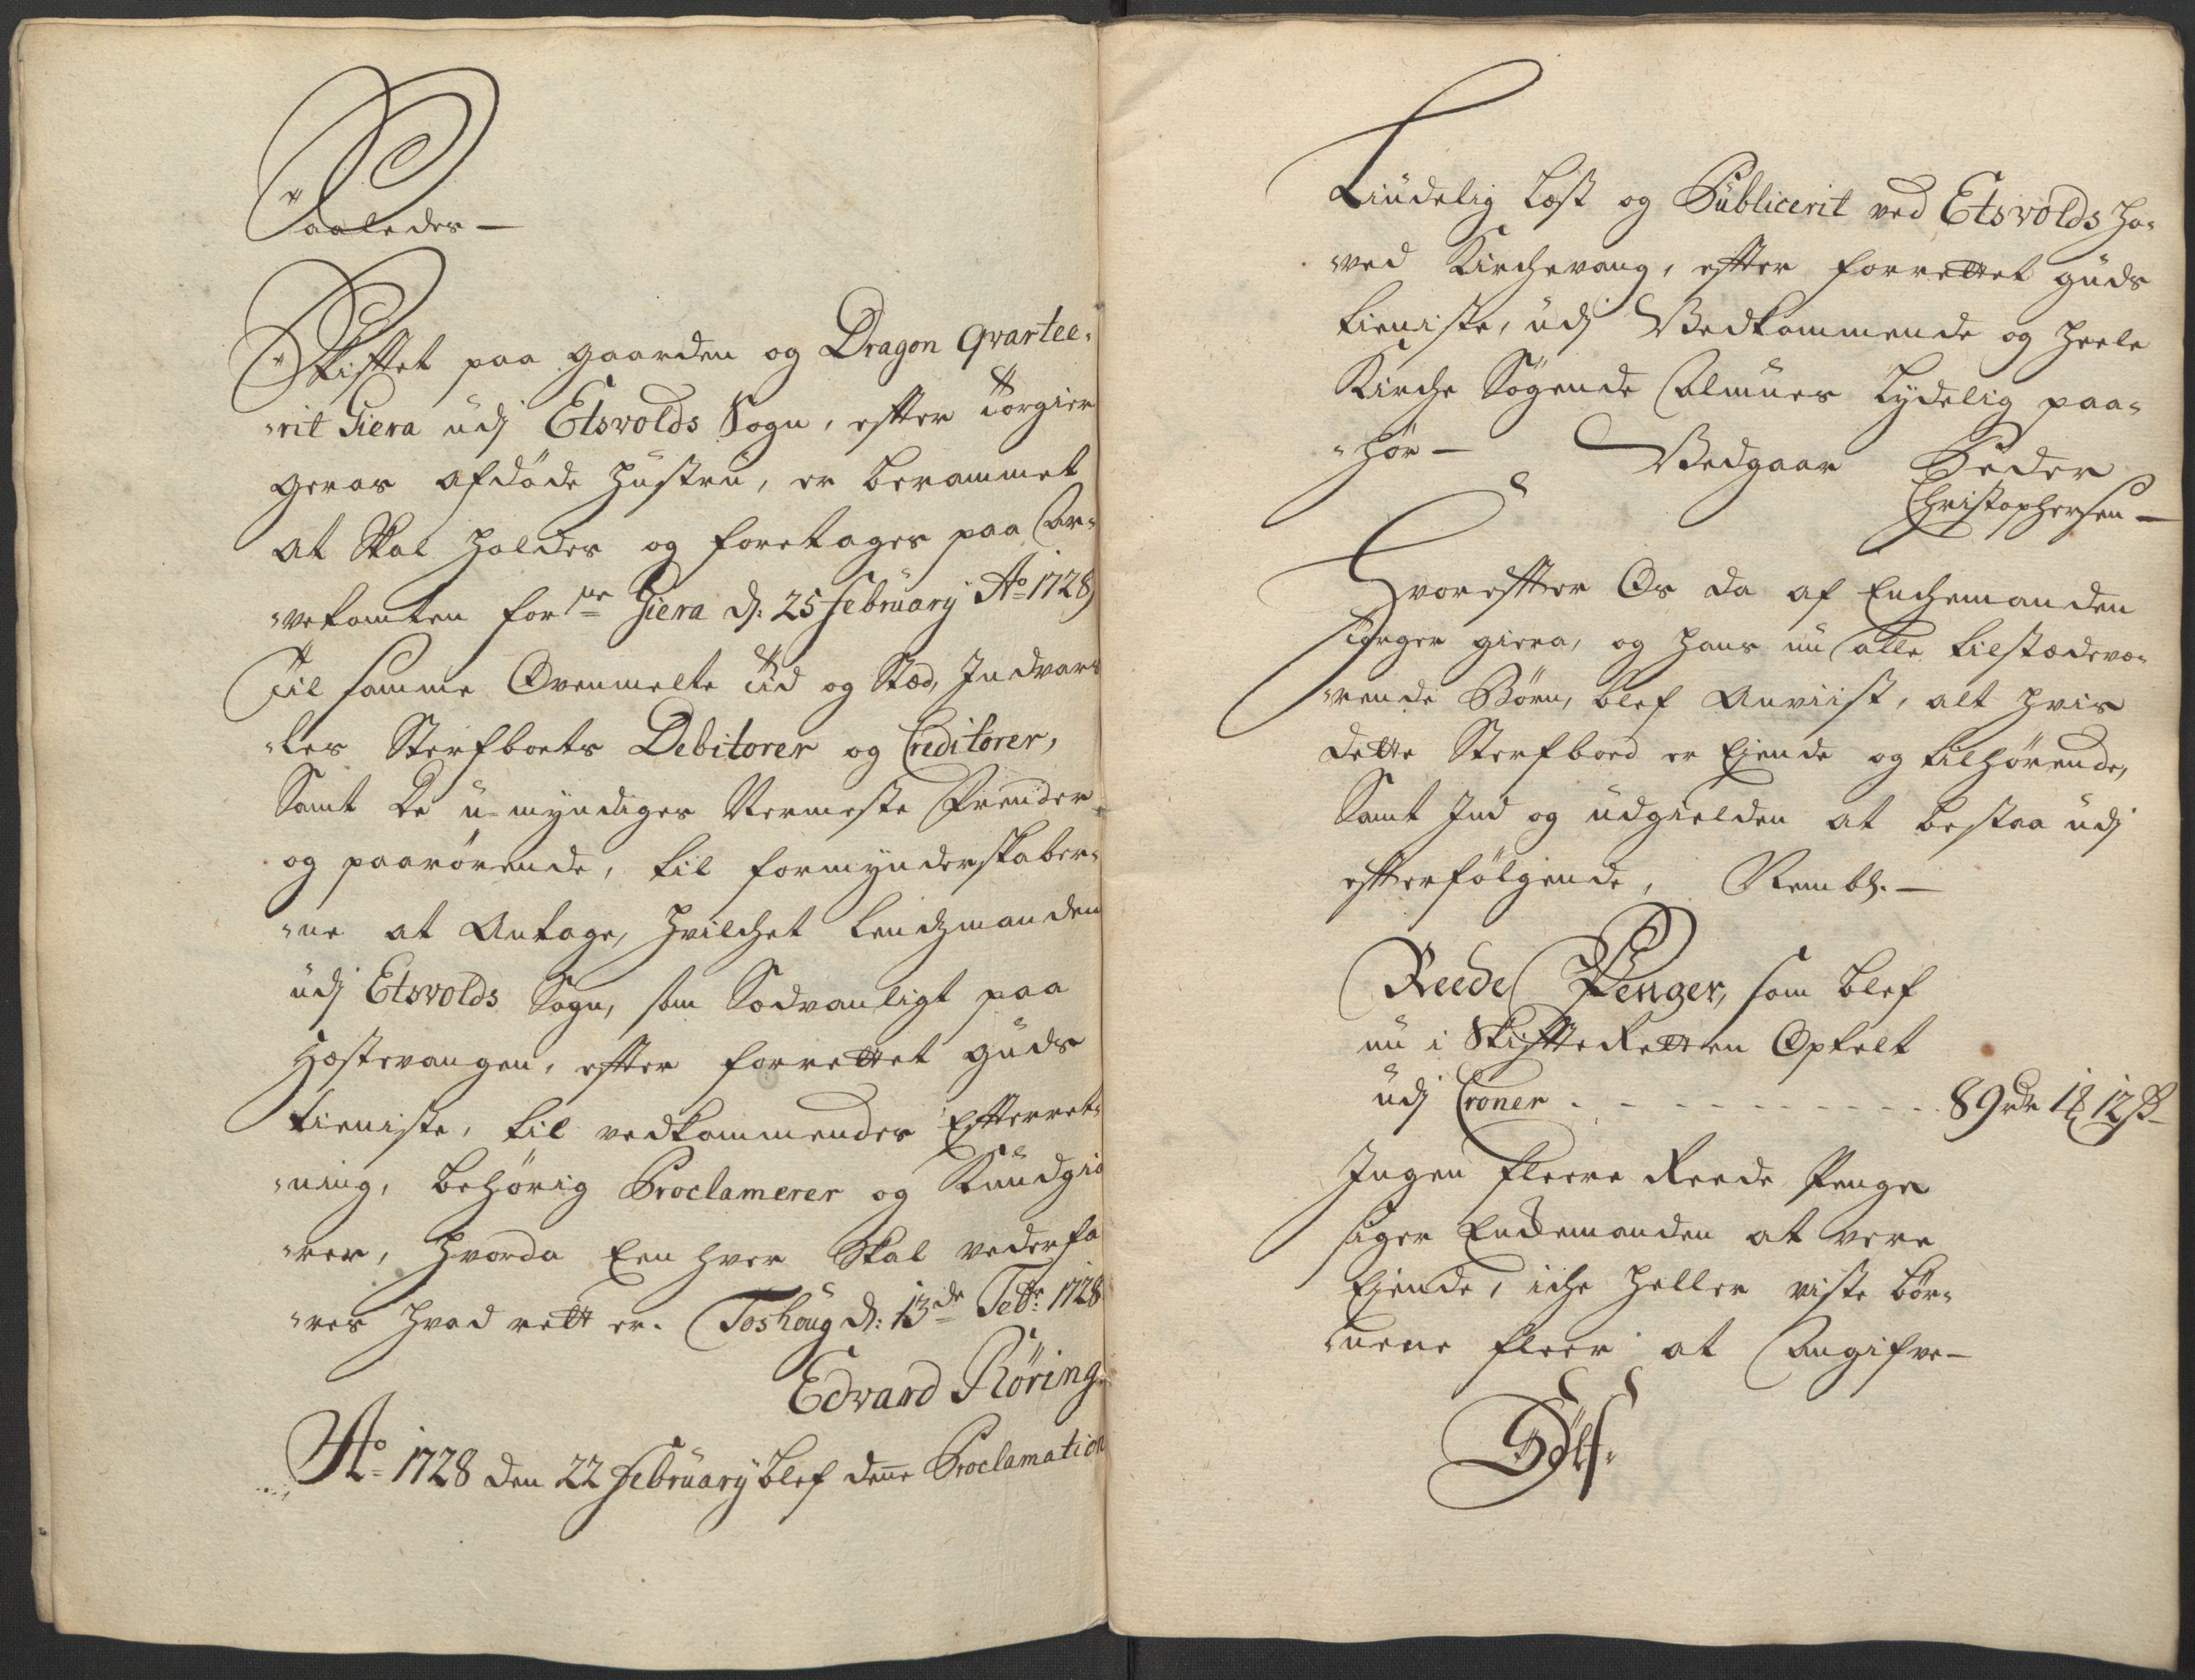 Saaledes —
Skifftet paa gaarden og Dragon Qvartee-
-rit Giera udj Etsvolds Sogn, effter Torgier
geras afdøde Hustru, er berammet
at Skal holdes og foretages paa Ar-
-vetomten forne Giera d: 25 February Ao 1728
Til samme Ovenmelte Tid og Stæd, Indvars
-les Sterfboets Debitorer og Creditorer,
Samt De u-myndiges Nermeste Frender
og paarørende, til formynderskaber-
-ne at Antage, hvilchet Lendsmanden
udj Etsvolds Sogn, som Sædvanligt paa
Hæstevangen, effter forrettet guds
tieniste, til vedkommendes Efterret-
-ning, behørig Proclamerer og Kundgiø
-rer, hvorda Een hver Skal vederfa
-res hvad rett er. Toshoug d: 13de Febr: 1728
Edvard Röring
Ao 1728 den 22 February blef denne Proclamation
Liudelig Læst og Publicerit ved Etsvolds Ho-
-ved Kirchevang, effter forrettet guds
tieniste, udj Vedkommende og heele
Kirche Søgende Almues Lydelig paa-
-hør — Vedgaar Peder
Christophersen —
Hvoreffter Os da af Enchemanden
Torger giera, og hans nu alle tilstædevæ-
-rende Børn, blef Anviist, alt hvis
dette Sterfboed er Ejende og tilhørende,
Samt Ind og udgielden at bestaa udj
effterfølgende, Nembl. —
Reede Penger, som blef
nu i Skiffte Retten Optelt
udj Croner - - - - - - - - - - 89 rdr 1 12 s
Ingen fleere Reede Penge
siger Enchemanden at vere
Ejende, iche heller viste Bør-
-nene fleer at Angifve —
Sølf-